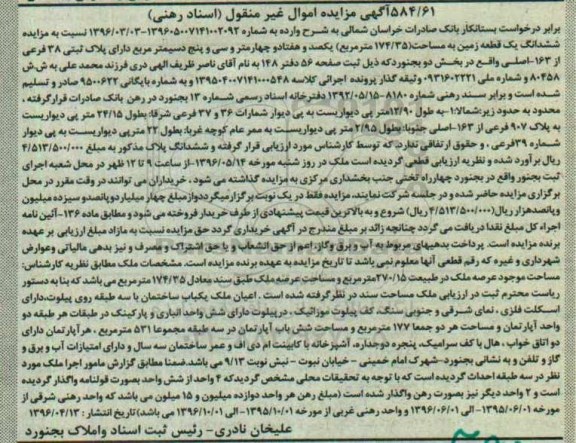 ۵۸۴/۶۱آگهی مزایده اموال غیر منقول (اسناد رهنی)
برابر درخواست بستانکار بانک صادرات خراسان شمالی به شرح وارده به شماره ۱۳۹۶۰۵۰۰۷۱۴۱۰۰۲۰۹۲-۱۳۹۶/۰۳/۰۳ نسبت به مزایده
ششدانگ یک قطعه زمین به مساحت(۱۷۴/۳۵ مترمربع) یکصد و هفتادو چهارمتر و سی و پنج دسیمتر مربع دارای پلاک ثبتی ۳۸ فرعی
از ۱۶۳-اصلی واقع در بخش دو بجنوردکه ذیل ثبت صفحه ۵۶ دفتر ۱۴۸ به نام آقای ناصر ظریف الهی دری فرزند محمد علی به ش ش
۸۰۴۵۸ و شماره ملی ۰۹۳۱۶۰۲۲۲۱ وثیقه گذار پرونده اجرائی کلاسه ۱۳۹۵۰۴۰۰۷۱۴۱۰۰۰۵۴۸ و به شماره بایگانی ۹۵۰۰۶۲۲ صادر و تسلیم
شده است و برابر سند رهنی شماره ۸۱۸۰-۱۳۹۲/۰۵/۱۵ دفترخانه اسناد رسمی شماره ۱۳ بجنورد در رهن بانک صادرات قرارگرفته ،
محدود به حدود زیر:شمالا:۱-به طول ۱۲/۹۰متر پی دیواریست به پی دیوار شمارات ۳۶ و ۳۷ فرعی شرقا: بطول ۲۴/۱۵ متر پی است
به پلاک ۹۰۷ فرعی از ۱۶۳-اصلی جنوبا: بطول ۲/۹۵ متر پی دیواریست به ممر عام کوچه غربا: بطول ۲۲ مترپی دیواریست به پی دیوار
شماره ۳۹فرعی ، و حقوق ارتفاقی ندارد. که توسط کارشناس مورد ارزیابی قرار گرفته و ششدانگ پلاک مذکور به مبلغ ۴/۵۱۳/۵۰۰/۰۰۰
ریال برآورد شده و نظریه ارزیابی قطعی گردیده است ملک در روز شنبه مورخه ۱۳۹۶/۰۵/۱۴-از ساعت ۹ تا ۱۲ ظهر در محل شعبه اجرای
ثبت بجنور واقع در بجنورد چهارراه تختی جنب بخشداری مرکزی به مزایده گذاشته می شود ، خریداران می توانند در وقت مقرر در محل
برگزاری مزایده حاضر شده و در جلسه شرکت نمایند، مزایده فقط در یک نوبت برگزارمیگرددواز مبلغ چهار میلیاردوپانصدو سیزده میلیون
وپانصدهزار ریال(۴/۵۱۳/۵۰۰/۰۰۰ ریال) شروع و به بالاترین قیمت پیشنهادی از طرف خریدار فروخته می شود و مطابق ماده ۱۳۶-آئین نامه
اجراء کل مبلغ نقدا دریافت می گردد چنانچه زائد بر مبلغ مندرج در آگهی خریداری گردد حق مزایده نسبت به مازاد مبلغ ارزیابی بر عهده
برنده مزایده است. پرداخت بدهیهای مربوط به آب و برق وگاز، اعم از حق انشعاب و یا حق اشتراک و مصرف و نیز بدهی مالیاتی وعوارض
شهرداری و غیره که رقم قطعی آنها معلوم نمی باشد تا تاریخ مزایده به عهده برنده مزایده است. مشخصات ملک مطابق نظریه کارشناس:
مساحت موجود عرصه ملک در طبیعت ۲۷۰/۱۵مترمربع و مساحت عرصه ملک طبق سند معادل ۱۷۴/۳۵ مترمربع می باشد که بنا به دستور
ریاست محترم ثبت در ارزیابی ملک مساحت سند در نظر گرفته شده است ، اعیان ملک یکباب ساختمان با سه طبقه روی پیلوت،دارای
اسکلت فلزی ، نمای شرقی و جنوبی سنگ، کف پیلوت موزائیک ، درپیلوت دارای شش واحد انباری و پارکینگ در طبقات هر طبقه دو
واحد آپارتمان و مساحت هر دو جمعا ۱۷۷ مترمربع و مساحت شش باب آپارتمان در سه طبقه مجموعا ۵۳۱ مترمربع ، هرآپارتمان دارای
دو اتاق خواب ، هال با کف سرامیک، پنجره دوجداره، آشپزخانه با کابینت ام دی اف و عمر ساختمان سه سال و دارای امتیازات آب و برق و
گاز و تلفن و به نشانی بجنورد-شهرک امام خمینی - خیابان نبوت - نبش نوبت ۹/۱۳ می باشد.ضمنا مطابق گزارش مامور اجرا ملک مورد
نظر در سه طبقه احداث گردیده است که با توجه به تحقیقات محلی مشخص گردیدکه ۴ واحد از شش واحد بصورت قولنامه واگذار گردیده
است و ۲ واحد دیگر نیز بصورت رهن واگذار شده است (مبلغ رهن هر واحد دوازده میلیون و ۱۵ میلیون می باشد که واحد رهنی شرقی از
مورخه ۱۳۹۵/۰۶/۰۱-الی ۱۳۹۶/۰۶/۰۱ و واحد رهنی غربی از مورخه ۱۳۹۵/۱۰/۰۱-الی ۱۳۹۶/۱۰/۰۱ می باشد) تاریخ انتشار : ۱۳۹۶/۰۴/۱۳
علیخان نادری- رئیس ثبت اسناد واملاک بجنورد